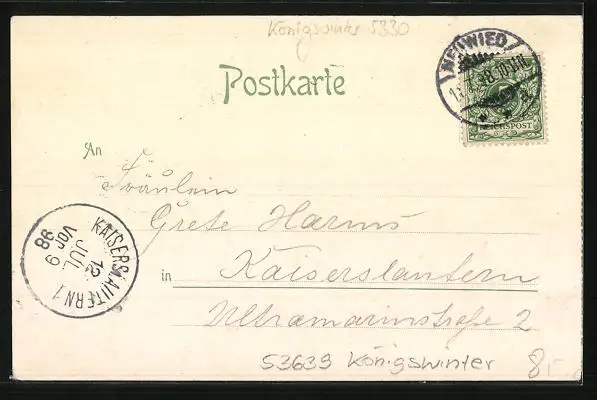 Königswinter 5330
NEUWIED
Postkarte
REICHSPOST
An
Fräulein
Grete Harms
in Kaiserslautern
Ultramarinstraße 2
KAISERSLAUTERN 1
12.
JUL
VOR 9
98
53639 Königswinter 8,-